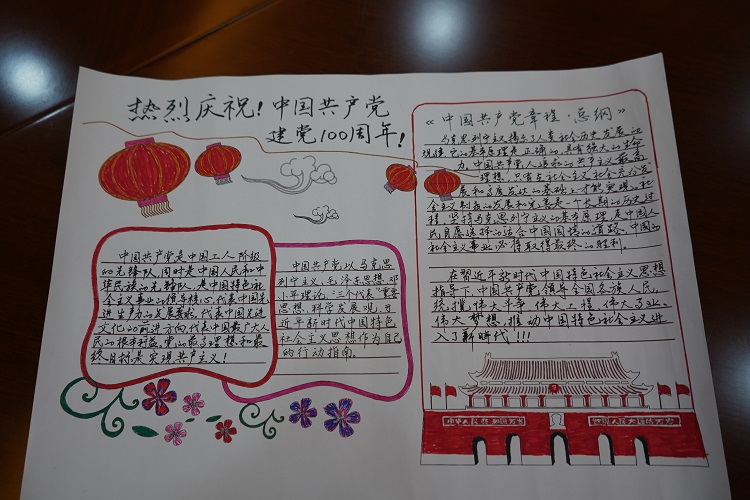 热烈庆祝!中国共产党
建党100周年!
中国共产党是中国工人阶级
的先锋队,同时是中国人民和中
华民族的先锋队,是中国特色
社会主义事业的领导核心,代表中国先
进生产力的发展要求,代表中国先进
文化的前进方向,代表中国最广大人
民的根本利益。党的最高理想和最
终目标是实现共产主义!
中国共产党以马克思
列宁主义、毛泽东思想、邓
小平理论、“三个代表”重要
思想、科学发展观、习
近平新时代中国特色
社会主义思想作为自己
的行动指南。
《中国共产党章程·总纲》
马克思列宁主义揭示了人类社会历史发展的
规律,它的基本原理是正确的,具有强大的生命
力。中国共产党人追求的共产主义最高
理想,只有在社会主义社会充分发
展和高度发达的基础上才能实现。社
会主义制度的发展和完善是一个长期的历史过
程。坚持马克思列宁主义的基本原理,走中国人
民自愿选择的适合中国国情的道路,中国的
社会主义事业必将取得最终的胜利。
在习近平新时代中国特色社会主义思想
指导下,中国共产党领导全国各族人民,
统揽伟大斗争、伟大工程、伟大事业、
伟大梦想,推动中国特色社会主义进
入了新时代!!!
中华人民共和国万岁
世界人民大团结万岁